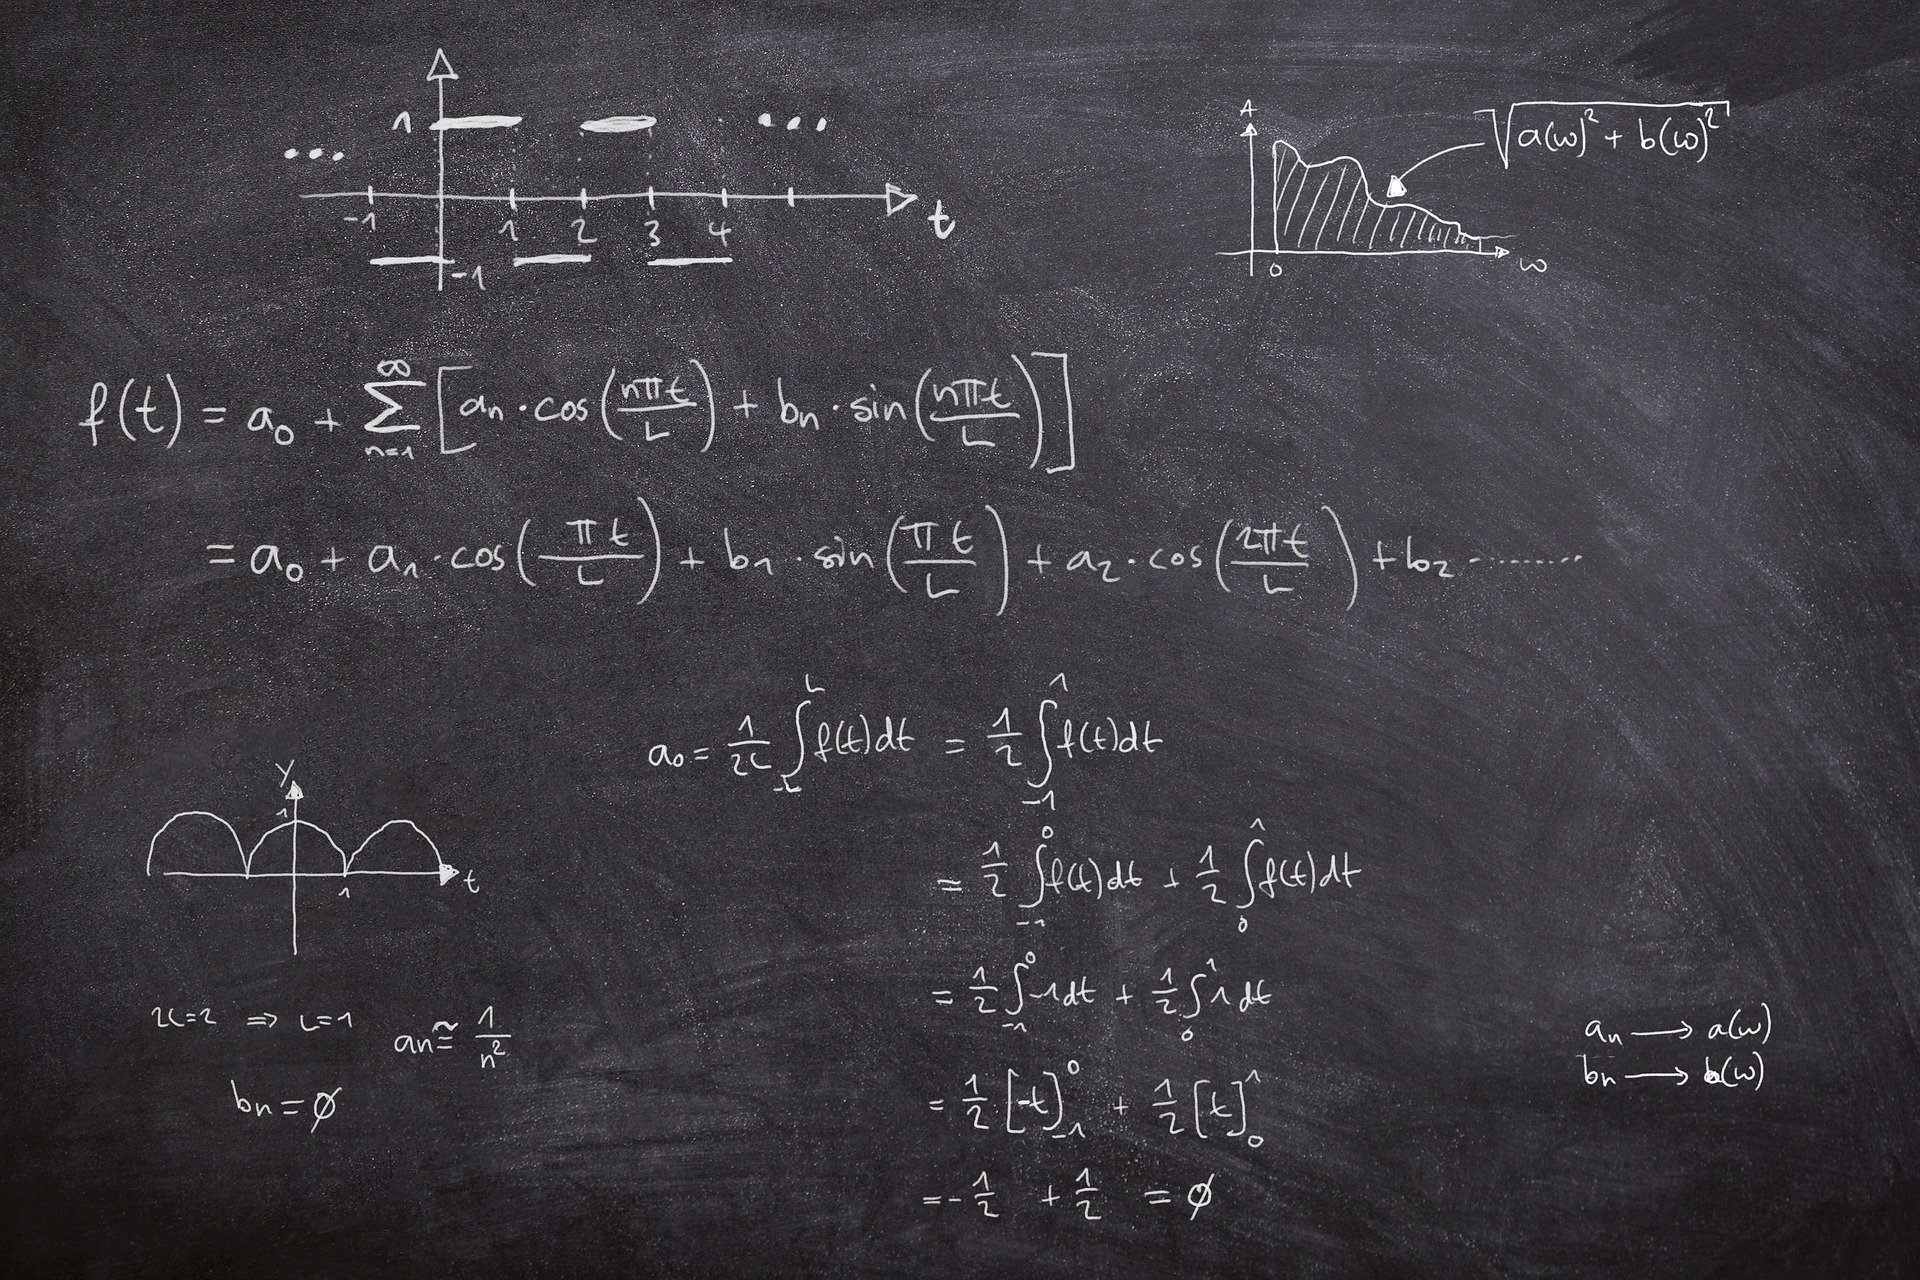 1
... ...
-1 1 2 3 4 t
-1
A
√(a(ω)² + b(ω)²)
0 ω
f(t) = a₀ + ∑_{n=1}^{∞} [aₙ · cos(nπt/L) + bₙ · sin(nπt/L)]
= a₀ + a₁ · cos(πt/L) + b₁ · sin(πt/L) + a₂ · cos(2πt/L) + b₂ ........
a₀ = 1/2L ∫_{-L}^{L} f(t)dt = 1/2 ∫_{-1}^{1} f(t)dt
= 1/2 ∫_{-1}^{0} f(t)dt + 1/2 ∫_{0}^{1} f(t)dt
= 1/2 ∫_{-1}^{0} -1dt + 1/2 ∫_{0}^{1} 1dt
= 1/2 [-t]_{-1}^{0} + 1/2 [t]_{0}^{1}
= -1/2 + 1/2 = ∅
y
1
1 t
2L=2 ⇒ L=1
aₙ ≅ 1/n²
bₙ = ∅
aₙ → a(ω)
bₙ → b(ω)